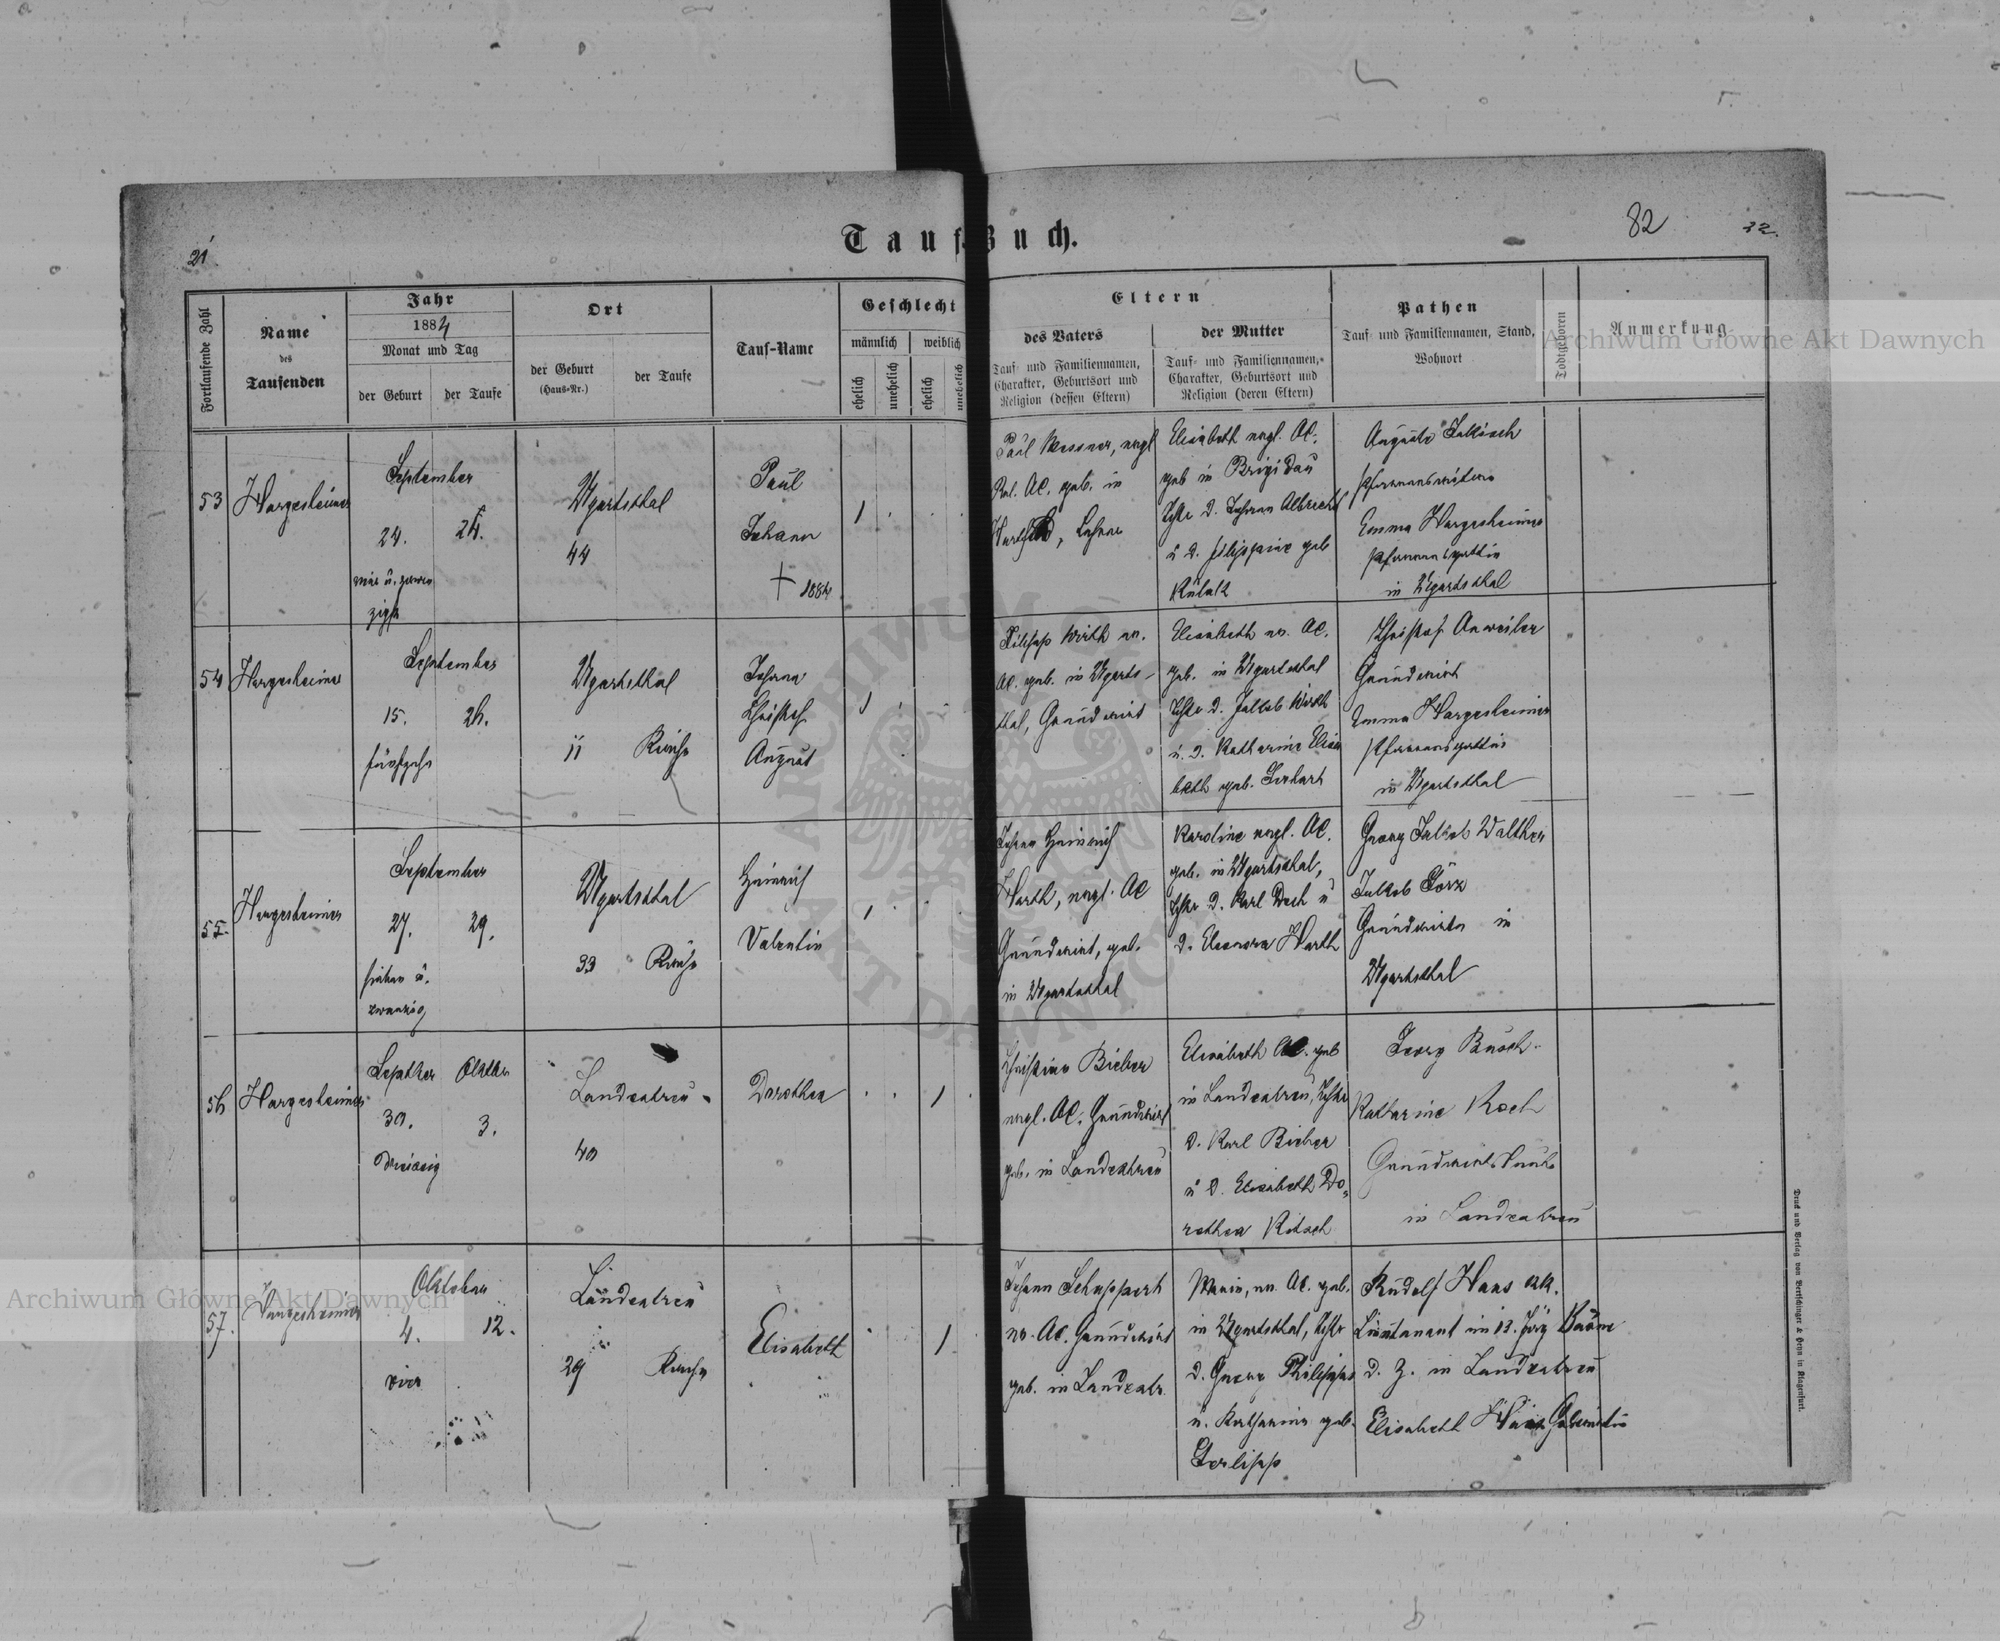 Tauf-Buch.
21
82
32.
Fortlaufende Zahl
Name
des
Taufenden
Jahr
1884
Monat und Tag
der Geburt
der Taufe
Ort
der Geburt
(Haus-Nr.)
der Taufe
Tauf-Name
Geschlecht
männlich
weiblich
ehelich
unehelich
ehelich
unehelich
Eltern
des Vaters
Tauf- und Familiennamen,
Charakter, Geburtsort und
Religion (dessen Eltern)
der Mutter
Tauf- und Familiennamen,
Charakter, Geburtsort und
Religion (deren Eltern)
Pathen
Tauf- und Familiennamen, Stand,
Wohnort
Todtgeboren
Anmerkung
53
Hargesheimer
September
24.
vier u. zwan
zigst
Ugartsthal
44
Paul
Johann
† 1884
1
Paul Messner, evgl
Rel. AC. geb. in
Lehrer
Elisabeth evgl. AC.
geb in Brigidau
Tchtr d. Johann Albrecht
u d. Filippine geb
Auguste
Emma Hargesheimer
Pfarrersgattin
in Ugartsthal
54
Hargesheimer
September
15.
26.
fünfzehn
Ugartsthal
11
Kirche
Johann
Christof
August
1
Filipp Wirth ev.
AC. geb. in Ugarts-
thal, Grundwirt
Elisabeth ev. AC.
geb. in Ugartsthal
Tchtr d. Jakob Wirth
u. d. Katharine Elisa
beth geb.
Christof Anweiler
Grundwirt
Emma Hargesheimer
Pfarrersgattin
in Ugartsthal
55.
Hargesheimer
September
27.
29.
sieben u.
zwanzig
Ugartsthal
33
Kirche
Heinrich
Valentin
1
Johann Heinrich
Harth, evgl. AC
Grundwirt, geb.
in Ugartsthal
Karoline evgl. AC.
geb. in Ugartsthal,
Tchtr d. Karl Dech u
d. Eleonora Harth
Georg Jakob Walther
Jakob Görz
Grundwirte in
Ugartsthal
56
Hargesheimer
Septber
Oktbr
30.
3.
dreissig
Landestreu
40
Dorothea
1
Christine Bieber
evgl. AC. Grundwirt
geb. in Landestreu
Elisabeth AC. geb
in Landestreu, Tchtr
d. Karl Bieber
u d. Elisabeth Do-
rothea
Georg Busch
Katharine Koch
Grundwirtsleute
in Landestreu
57.
Hargesheimer
Oktober
4.
12.
vier
Landestreu
29
Kirche
Elisabeth
1
Johann Schuppert
ev. AC. Grundwirt
geb. in Landestr.
Maria, ev. AC. geb.
in Ugartsthal, Tchtr
d. Georg Philipps
u. Katharina geb.
Gerlipp
Rudolf Haas kk.
Lieutenant im 13. Jäg
d. Z. in Landestreu
Elisabeth
Druck und Verlag von Bertschinger & Heyn in Klagenfurt.
Archiwum Główne Akt Dawnych
Archiwum Główne Akt Dawnych
ARCHIWUM GŁÓWNE AKT DAWNYCH